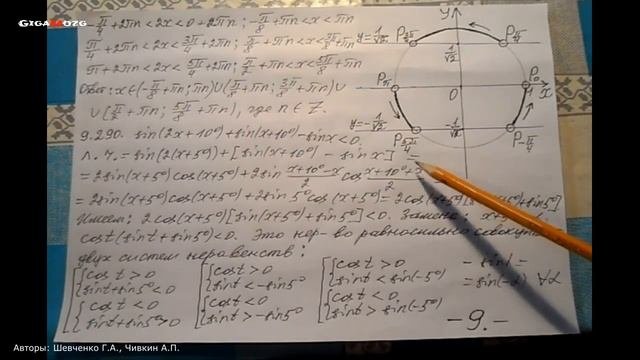 GIGAMOZG
-π/4+2πn<2x<0+2πn; -π/8+πn<x<πn
π/4+2πn<2x<3π/4+2πn; π/8+πn<x<3π/8+πn
π+2πn<2x<5π/4+2πn; π/2+πn<x<5π/8+πn
Ответ: x∈(-π/8+πn; πn)∪(π/8+πn; 3π/8+πn)∪
∪(π/2+πn; 5π/8+πn), где n∈Z.
9.290. sin(2x+10°)+sin(x+10°)-sinx<0.
Л.ч.=sin(2(x+5°))+[sin(x+10°)-sinx]=
=2sin(x+5°)cos(x+5°)+2sin (x+10°-x)/2 cos (x+10°+x)/2
=2sin(x+5°)cos(x+5°)+2sin5°cos(x+5°)=2cos(x+5°)[sin(x+5°)+sin5°]
Имеем: 2cos(x+5°)[sin(x+5°)+sin5°]<0. Замена: x+5°
cost(sint+sin5°)<0. Это нер-во равносильно совокуп
двух систем неравенств:
{cost>0 {cost>0 {cost>0 -sinα=
sint+sin5°<0 sint<-sin5° sint<sin(-5°) =sin(-α) ∀α
{cost<0 {cost<0 {cost<0,
sint+sin5°>0 sint>-sin5° sint>sin(-5°)
-9.-
y
y=1/√2
P3π/4
1/√2
Pπ/4
Pπ
0
P0
x
y=-1/√2
P5π/4
-1/√2
P-π/4
Авторы: Шевченко Г.А., Чивкин А.П.